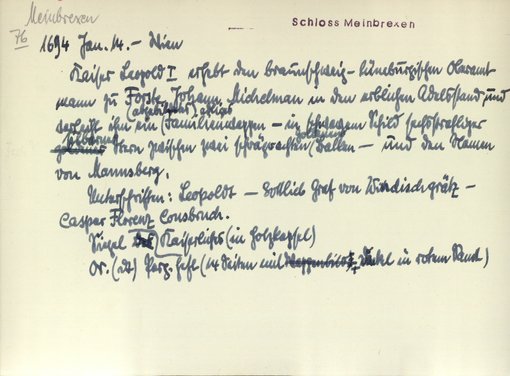 Meinbrexen
76
Schloss Meinbrexen
1694 Jan. 14. – Wien
Kaiser Leopold I erhebt den braunschweig-lüneburgischen Oberamt
mann zu Forste, Johann Michelman in den erblichen Adelsstand und
verleiht ihm ein (abgebildetes) Familienwappen – in schwarzem Schild sechsstrahliger
goldener Stern zwischen zwei schrägrechten goldenen Balken – und den Namen
von Mannsberg.
Unterschriften: Leopoldt – Gottlieb Graf von Windischgrätz –
Caspar Florenz Consbruch.
Siegel Kaiserliches (in Holzkapsel)
Or. (dt) Perg. heft (14 Seiten mit in rotem)